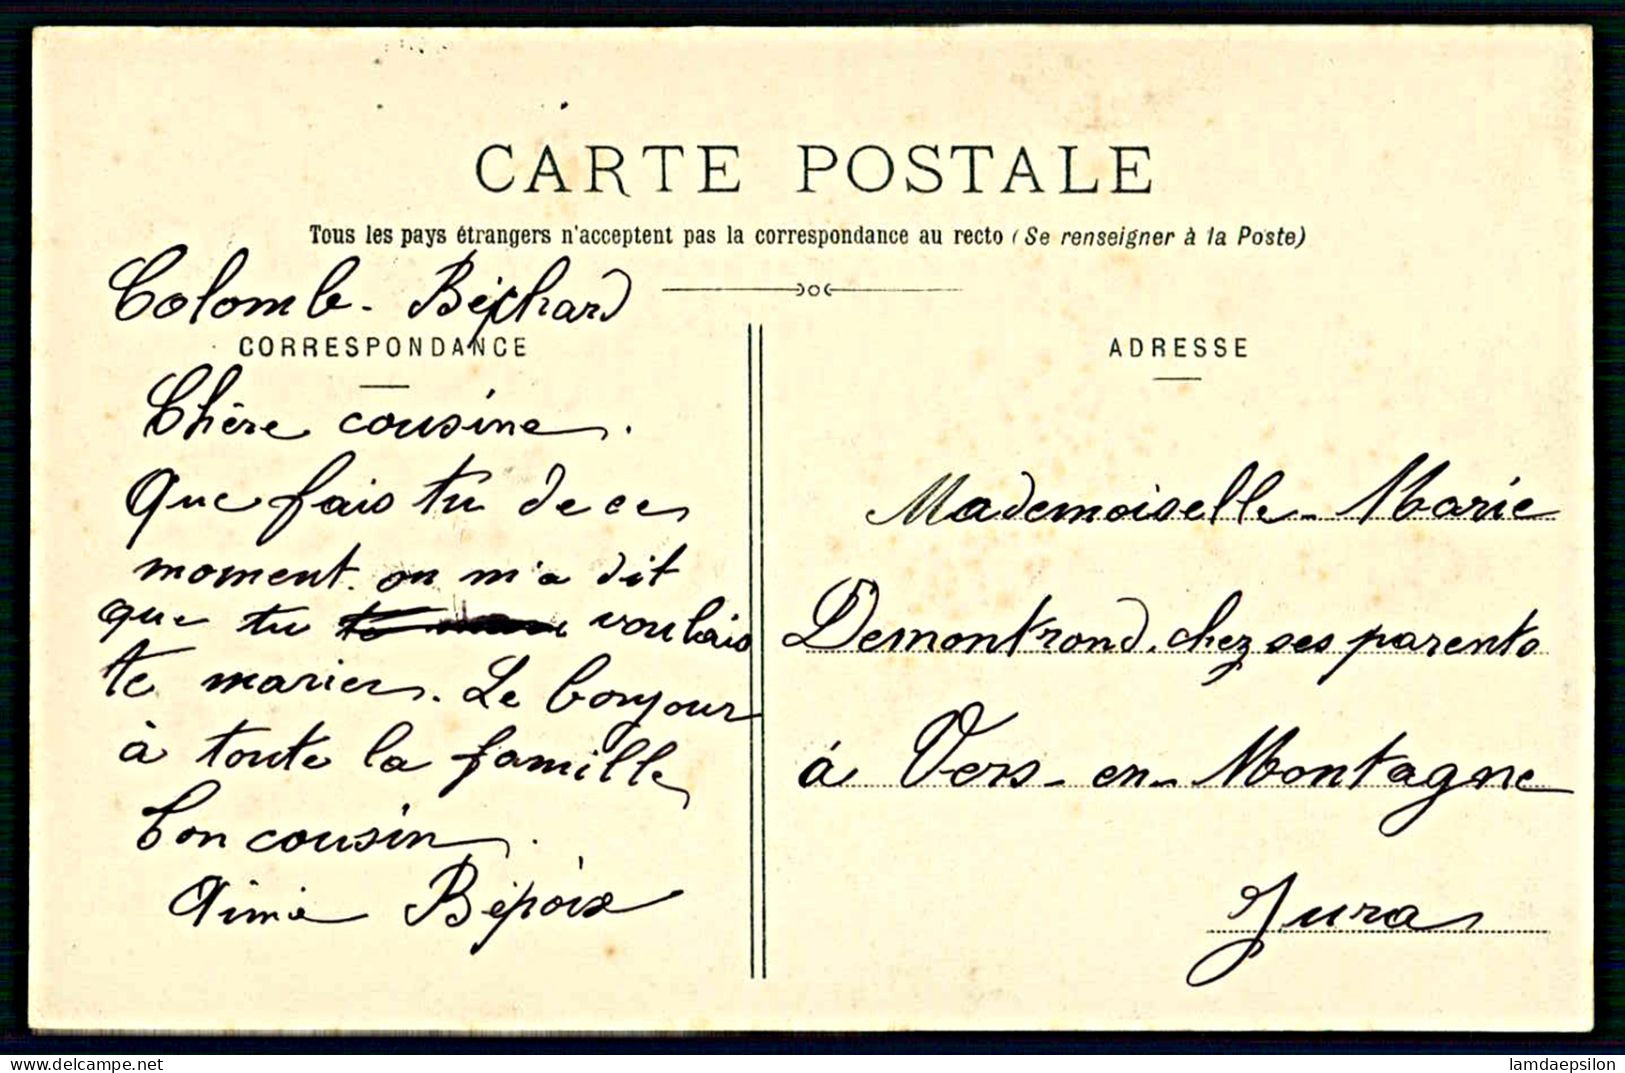 CARTE POSTALE
Tous les pays étrangers n'acceptent pas la correspondance au recto (Se renseigner à la Poste)
Colomb-Béchard
CORRESPONDANCE
Chère cousine.
Que fais tu de ce
moment. on m'a dit
que tu voulais
te marier. Le bonjour
à toute la famille
Ton cousin.
Aimé Bépoix
ADRESSE
Mademoiselle Marie
Demontrond. chez ses parents
à Vers-en-Montagne
Jura
delcampe.net
lamdaepsilon